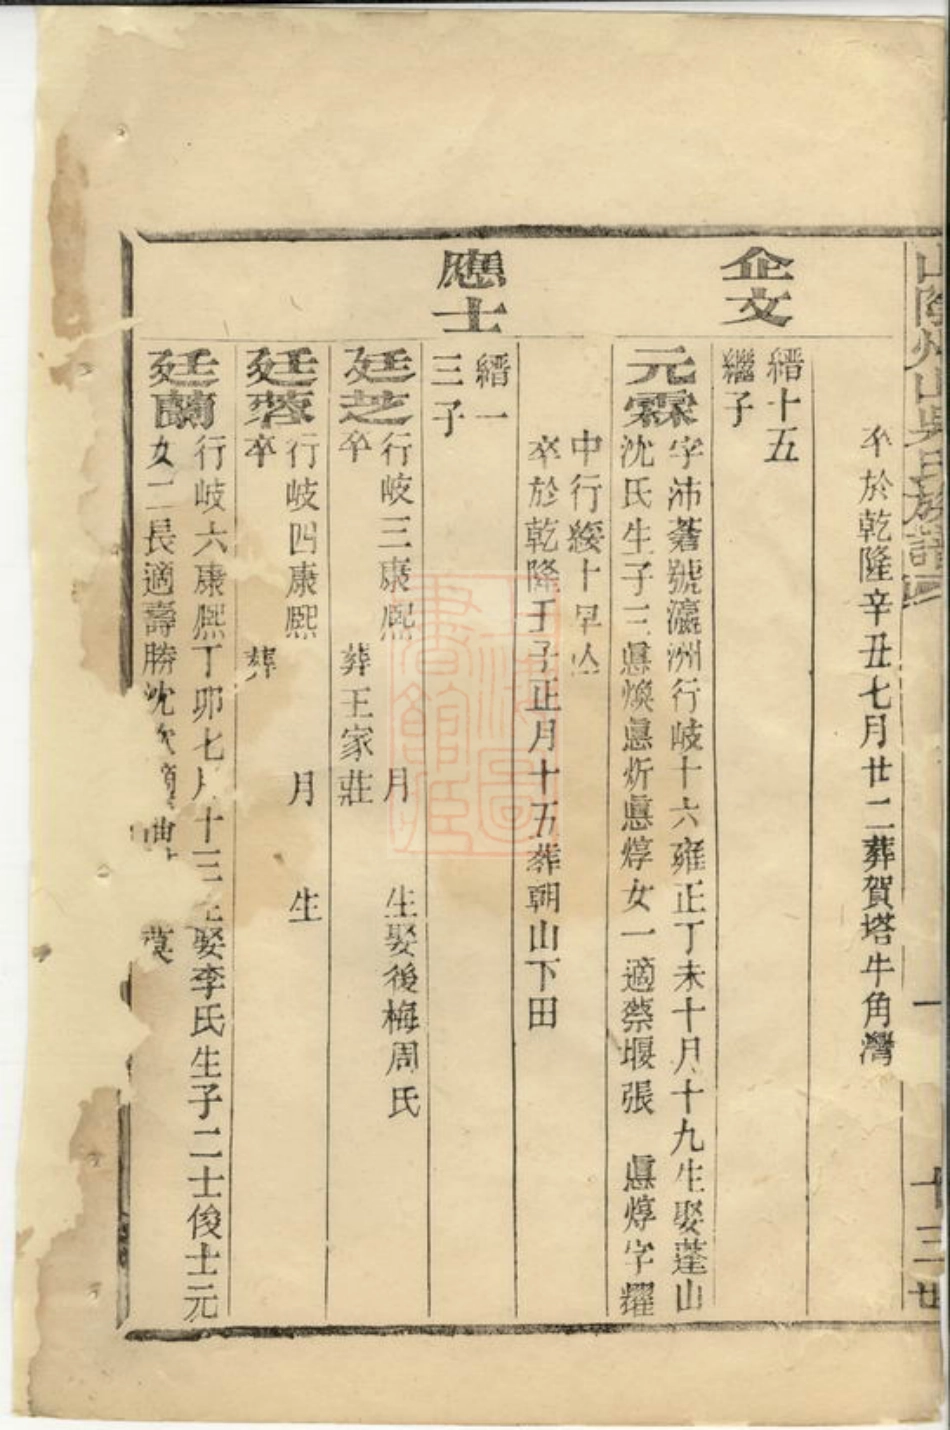 山陰州山吳氏族譜
十三世
卒於乾隆辛丑七月廿二葬賀塔牛角灣
企文
縉十五
繼子
元霖
字沛蒼號瀛洲行岐十六雍正丁未十月十九生娶蓬山
沈氏生子三愚煥愚炘愚焞女一適蔡堰張 愚焞字耀
中行綏十早亾
卒於乾隆壬子正月十五葬朝山下田
應士
縉一
三子
廷芝
行岐三康熙 月 生娶後梅周氏
卒 葬王家莊
廷蓉
行岐四康熙 月 生
卒 葬
廷蘭
行岐六康熙丁卯七月十三生娶李氏生子二士俊士元
女二長適壽勝沈次適